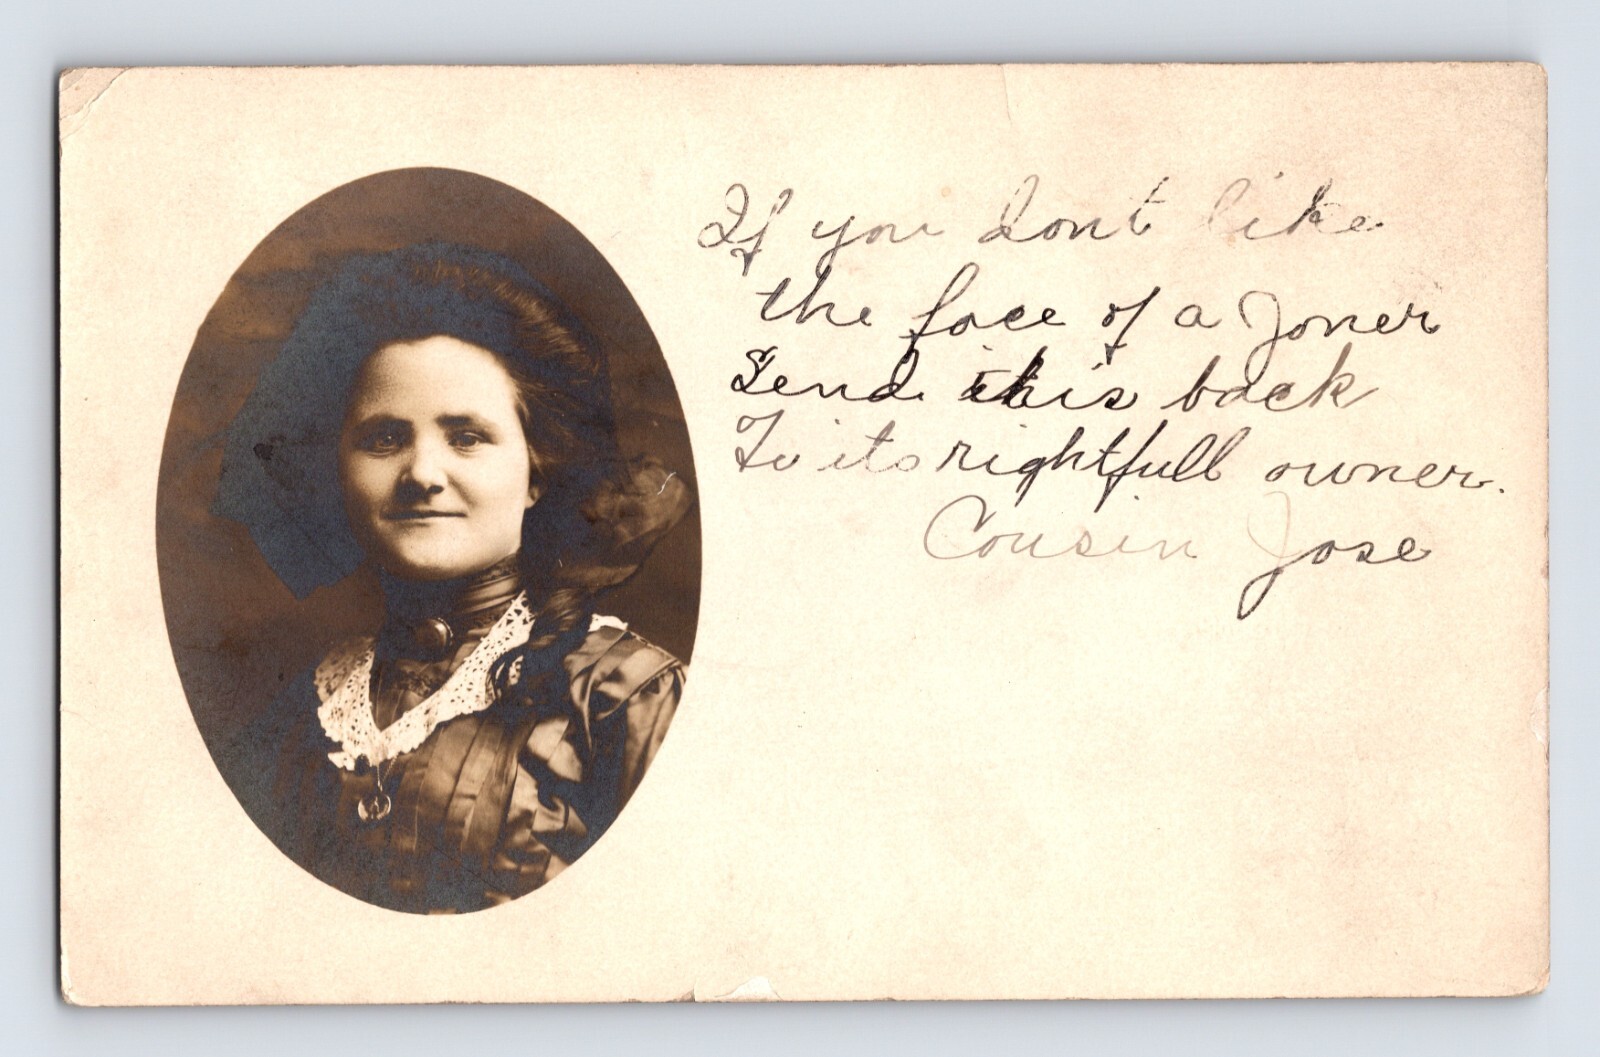 If you dont like
the face of a Joner
Send this back
To its rightfull owner.
Cousin Jose